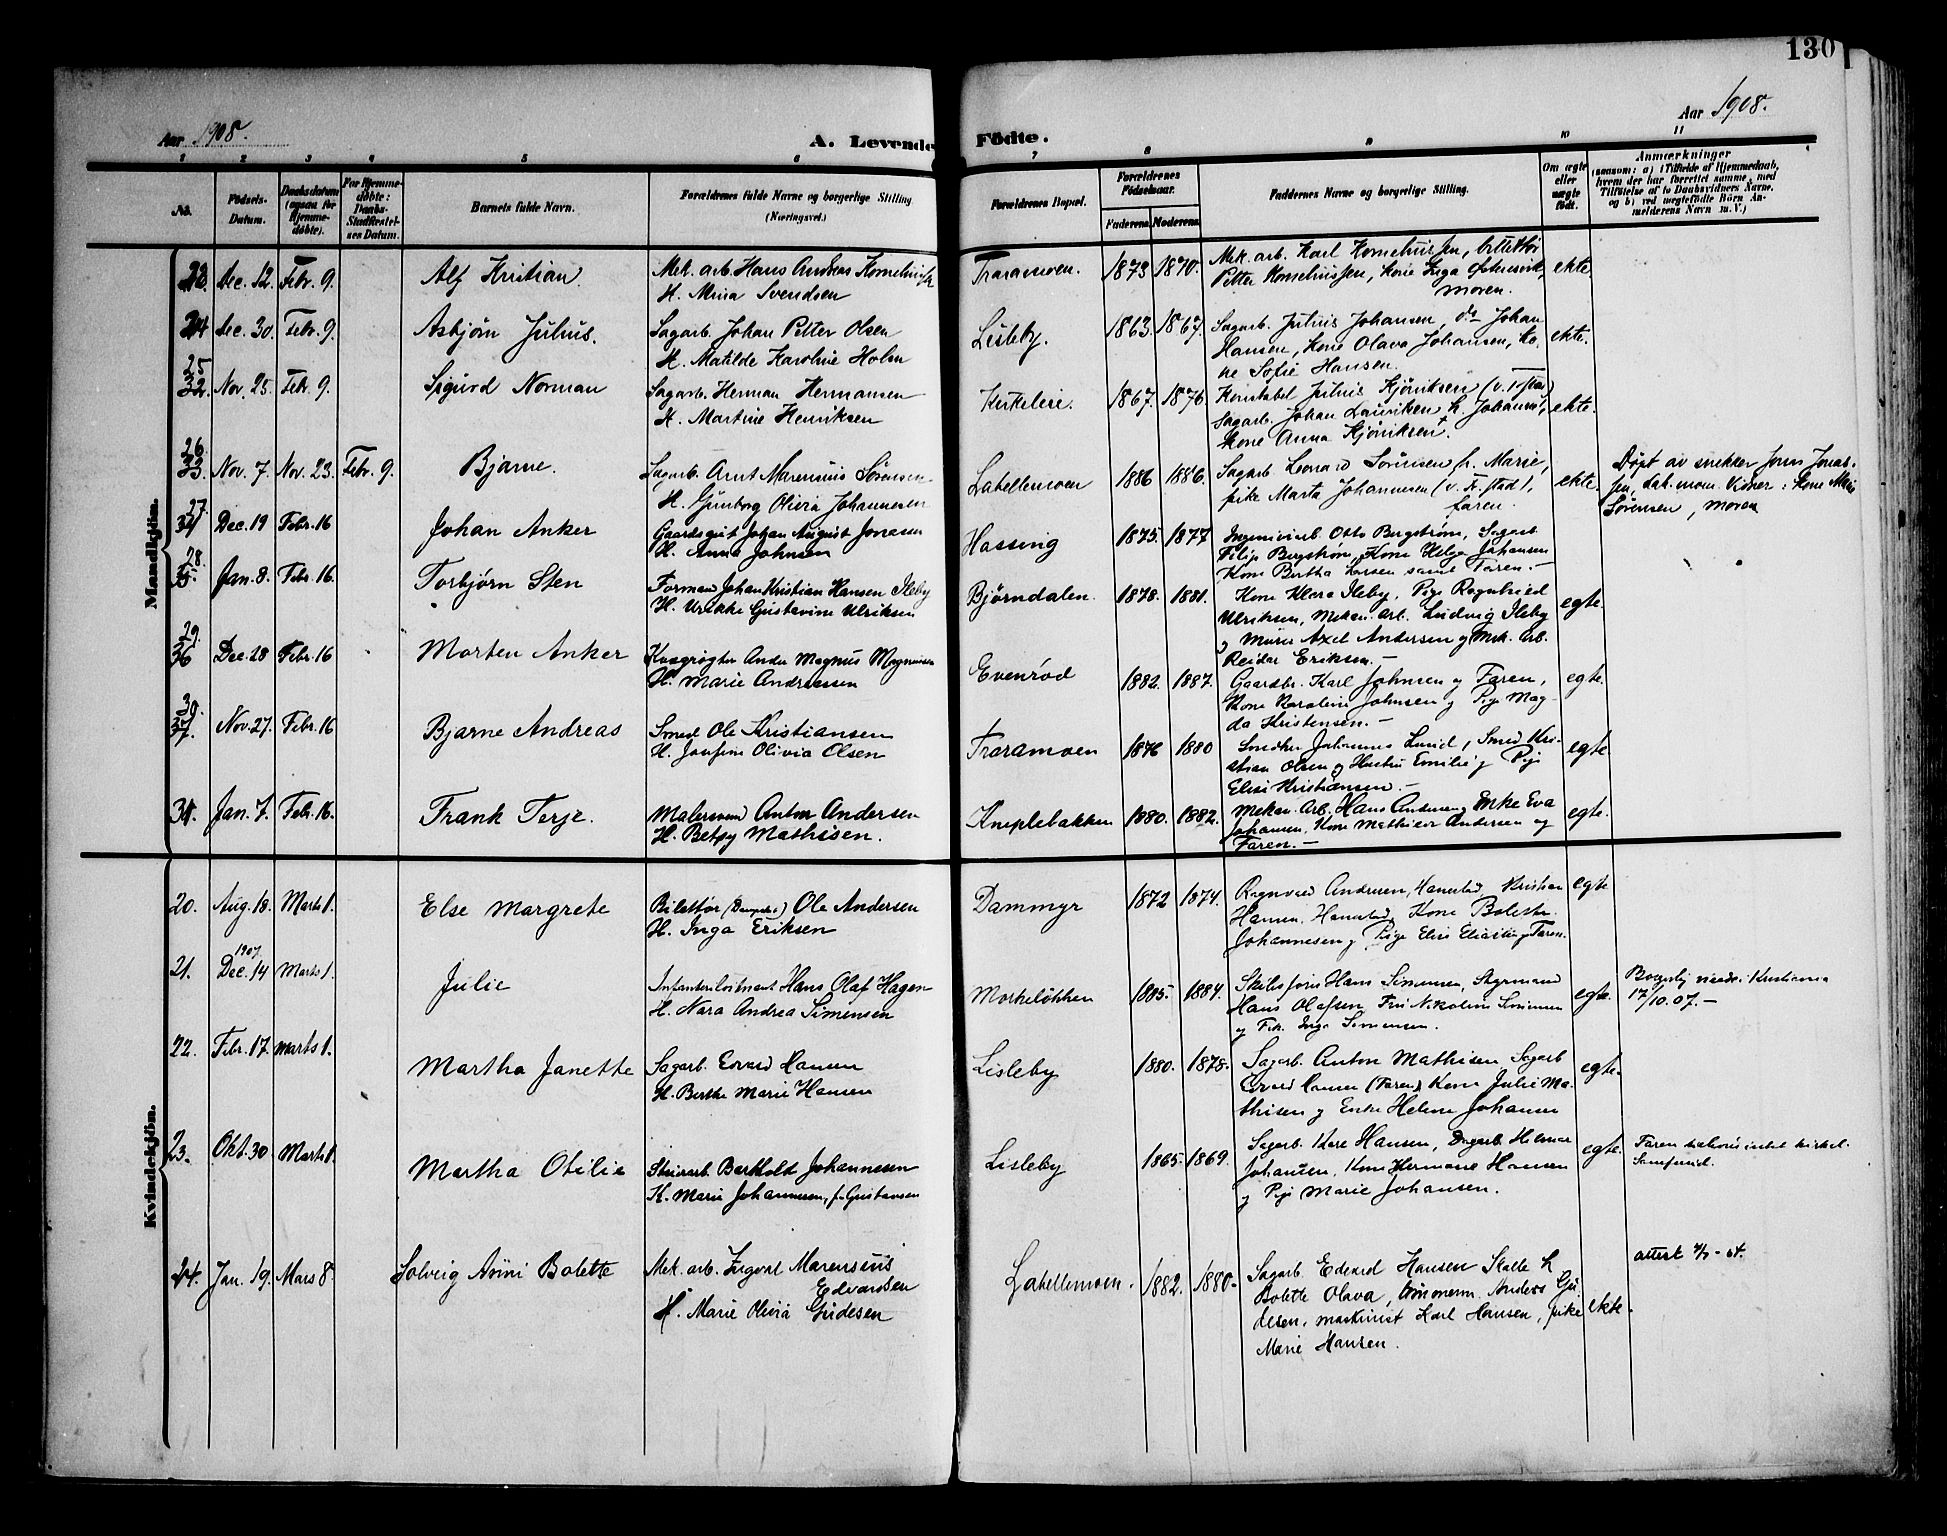 130
Aar 1908.
A. Levende Födte.
Aar 1908.
1 2 3 4 5 6 7 8 9 10 11
No.
Födsels-Datum.
Daabsdatum (ogsaa for Hjemme-döbte).
For Hjemme-döbte: Daabs-Stadfæstel-ses Datum.
Barnets fulde Navn.
Forældrenes fulde Navne og borgerlige Stilling (Næringsvei.)
Forældrenes Bopæl.
Forældrenes Födselsaar.
Faderens. Moderens.
Faddernes Navne og borgerlige Stilling.
Om ægte eller uægte födt.
Anmærkninger
(saasom: a) i Tilfælde af Hjemmedaab, hvem der har forrettet samme, med Tilföielse af to Daabsvidners Navne, og b) ved uægtefödte Börn An-melderens Navn m. V.)
Mandkjön.
23. Dec. 12. Febr. 9. Alf Kristian. Mek. arb. Hans Andreas Korneliussen
H. Mina Svendsen
Traramoen. 1873 1870.
Mek. arb. Karl Korneliussen,
Petter Korneliussen, Kone Inga
moren.
ekte
24 Dec. 30. Febr. 9. Asbjörn Julius. Sagarb. Johan Petter Olsen
H. Matilde Karoline Holm
Lisleby. 1863. 1867.
Sagarb. Julius Johansen, do Johan
Hansen, Kone Olava Johansen, Ko-
ne Sofie Hansen.
ekte.
25
32. Nov. 25. Febr. 9. Sigurd Norman Sagarb. Herman Hermansen
H. Martine Henriksen
Kirkeleie. 1867. 1876.
Konstabel Julius Kjöniksen (v. F.stad)
Sagarb. Johan Lauriksen h. Johanne,
Kone Anna Kjöniksen
ekte.
26
33. Nov. 7 Nov. 23. Febr. 9. Bjarne. Sagarb. Arnt Marensius Sörensen
H. Gunborg Olivia Johannesen
Labellemoen 1886 1886.
Sagarb. Leonard Sörensen h. Marie,
pike Marta Johannesen (v. Fr.stad),
faren.
ekte.
Döpt av snekker Jonas-
sen, Lab.mom. Vidner: Kone Marie
Sörensen, moren
27.
34 Dec. 19 Febr. 16 Johan Anker Gaardsgut Johan August Jonasen
H. Anna Johnsen
Hassing 1875. 1877
Ingeniörarb. Otto Bergström, Sagarb.
Filip Bergström, Kone Helga Johansen
Kone Bertha Larsen samt Faren. —
28.
35. Jan. 8. Febr. 16. Torbjörn Sten Formand Johan Kristian Hansen Ileby
H. Ulrikke Gustavine Ulriksen
Björndalen. 1878. 1881.
Kone Klara Ileby, Pige Ragnhild
Ulriksen, Mekan. Arb. Ludvig Ileby
Murer Axel Andersen og Mek. Arb.
Reidar Eriksen. —
egte.
29.
36 Dec. 28 Febr. 16 Morten Anker Kvægrögter Anders Magnus Magnussen
H. Marie Andreassen
Evenröd 1882. 1887.
Gaardbr. Karl Johnsen og Faren,
Kone Karoline Johnsen og Pige Mag-
da Kristensen. —
egte.
30.
37. Nov. 27. Febr. 16 Bjarne Andreas Smed Ole Kristiansen
H. Josefine Olivia Olsen
Traramoen 1876 1880
Snedker Johannes Lund, Smed Kri-
stian Olsen og Hustru Emilie og Pige
Elise Kristiansen. —
egte
31 Jan. 7. Febr. 16. Frank Terje. Malersvend Anton Andersen
H. Betsy Mathisen.
Kneplebakken 1880. 1882.
Mekan. Arb. Hans Andersen og Enke Eva
Johansen, Kone Mathilde Andersen og
Faren. —
egte.
Kvindekjön.
20. Aug. 18. Marts 1. Else Margrete Billettör (Dampskib) Ole Andersen
H. Inga Eriksen
Dammyr 1872 1874.
Ragnvald Andersen, Hanestad, Kristian
Hansen, Hanestad, Kone Bolette
Johannesen og Pige Elise Eliassen og Faren.
egte
1907
21. Dec. 14 Marts 1. Julie Infanteriloitnant Hans Olaf Hagen
H. Nara Andrea Simensen
Morkelökken 1885. 1884.
Skibsförer Hans Simensen, Styrmand
Hans Olafsen, Fru Nikoline Simensen
og Frk. Inga Simensen.
egte.
Borgerlig viede i Kristiania
17/10.07. —
22. Febr. 17. Marts 1. Martha Janette Sagarb. Edvard Hansen
H. Berthe Marie Hansen
Lisleby 1880. 1878.
Sagarb. Anton Mathisen Sagarb.
Edvard Hansen (Faren), Kone Julie Ma-
thisen og Enke Helene Johansen
egte.
23. Okt. 30 Marts 1. Martha Otilie Barthold Johannssen
H. Marie Johannesen, f. Gustavsen
Lisleby 1865. 1869.
Sagarb. Kare Hansen, Dagarb. Helmar
Johansen, Kone Hermane Hansen
og Pige Marie Johansen.
egte.
Faren
Samfund.
24. Jan. 19. Mars 8. Solveig Anni Bolette Mek. arb. Ingvar Marensius
Edvardsen
H. Marie Olivia Gudesen
Labellemoen. 1882. 1880.
Sagarb. Edvard Hansen Skalle h.
Bolette Olava, tömmerm. Anders Gu-
desen, maskinist Karl Hansen, pike
Marie Hansen.
ekte.
attest